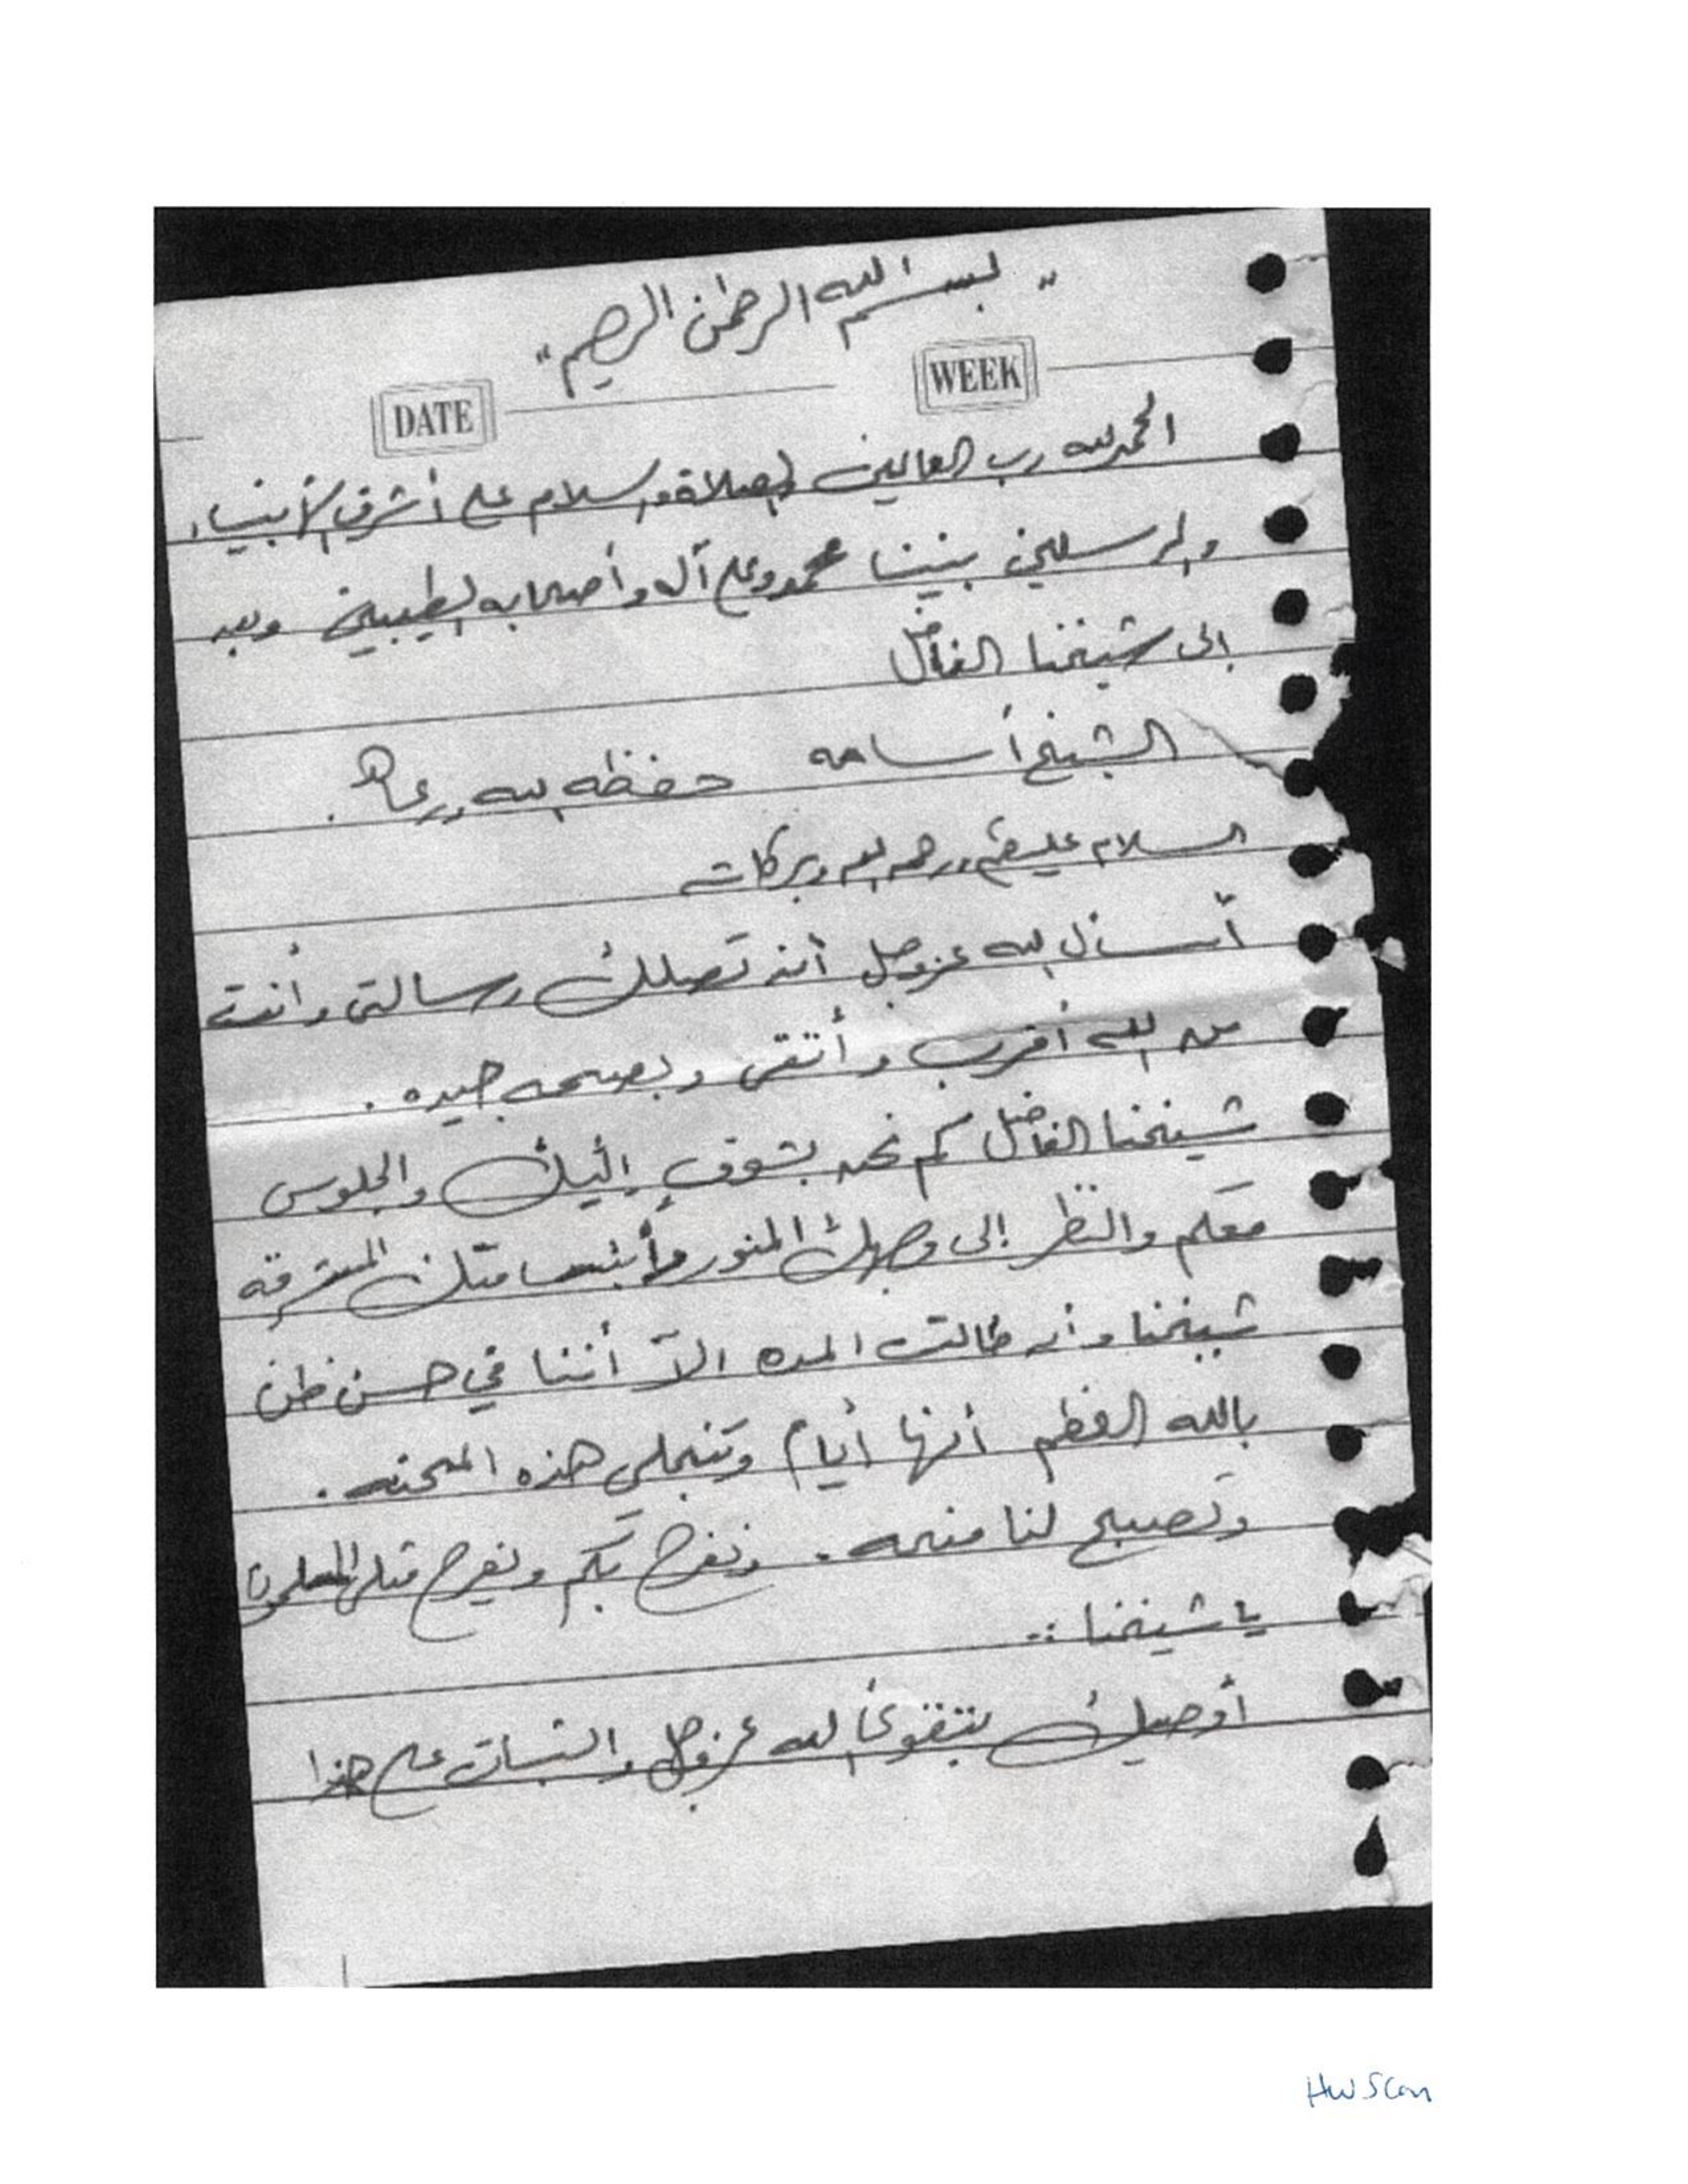 " بسم الله الرحمن الرحيم "
DATE WEEK
الحمد لله رب العالمين والصلاة والسلام على أشرف الأنبياء
والمرسلين نبينا محمد وعلى آله وأصحابه الطيبين وبعد
إلى شيخنا الفاضل
الشيخ أسامه حفظه الله ورعاه .
السلام عليكم ورحمه الله وبركاته
أسأل الله عزوجل أن تصلك رسالتي وأنت
من الله أقرب وأتقى وبصحه جيده .
شيخنا الفاضل كم نحن بشوق إليك والجلوس
معكم والنظر إلى وجهك المنور وأبتسامتك المشرقه
شيخنا وأن طالت المده الآ أننا في حسن ظن
بالله العظيم أنها أيام وتنجلي هذه المحنه .
وتصبح لنا منحه . ونفرح بكم ويفرح المسلمون
يا شيخنا :-
أوصيك بتقوى الله عزوجل والثبات على هذا
HW Scan